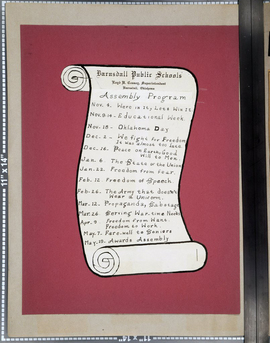 Barnsdall Public Schools
Barnsdall, Oklahoma
Assembly Program
Nov. 4. We're in It, Let's Win It
Nov. 8-14. Educational Week
Nov. 18 - Oklahoma Day
Dec. 2 - We fight for Freedom
It was almost too late.
Dec. 16. Peace on Earth, Good
Will to Men
Jan. 6 The State of the Union
Jan. 22. Freedom from Fear.
Feb. 12 Freedom of Speech
Feb. 26. The Army that doesn't
Wear a Uniform.
Mar. 12. Propaganda, Sabotage
Mar. 26 Serving War-time Needs
Apr. 9 Freedom from Want
Freedom to Work
May. 7. Farewell to Seniors
May. 10. Awards Assembly
11" x 14"
11" x 14"